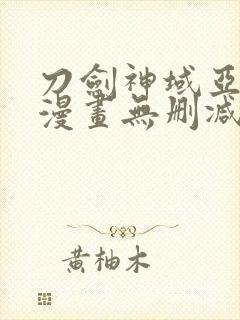 刀劍神域亞
漫畫無刪減
黄柚木